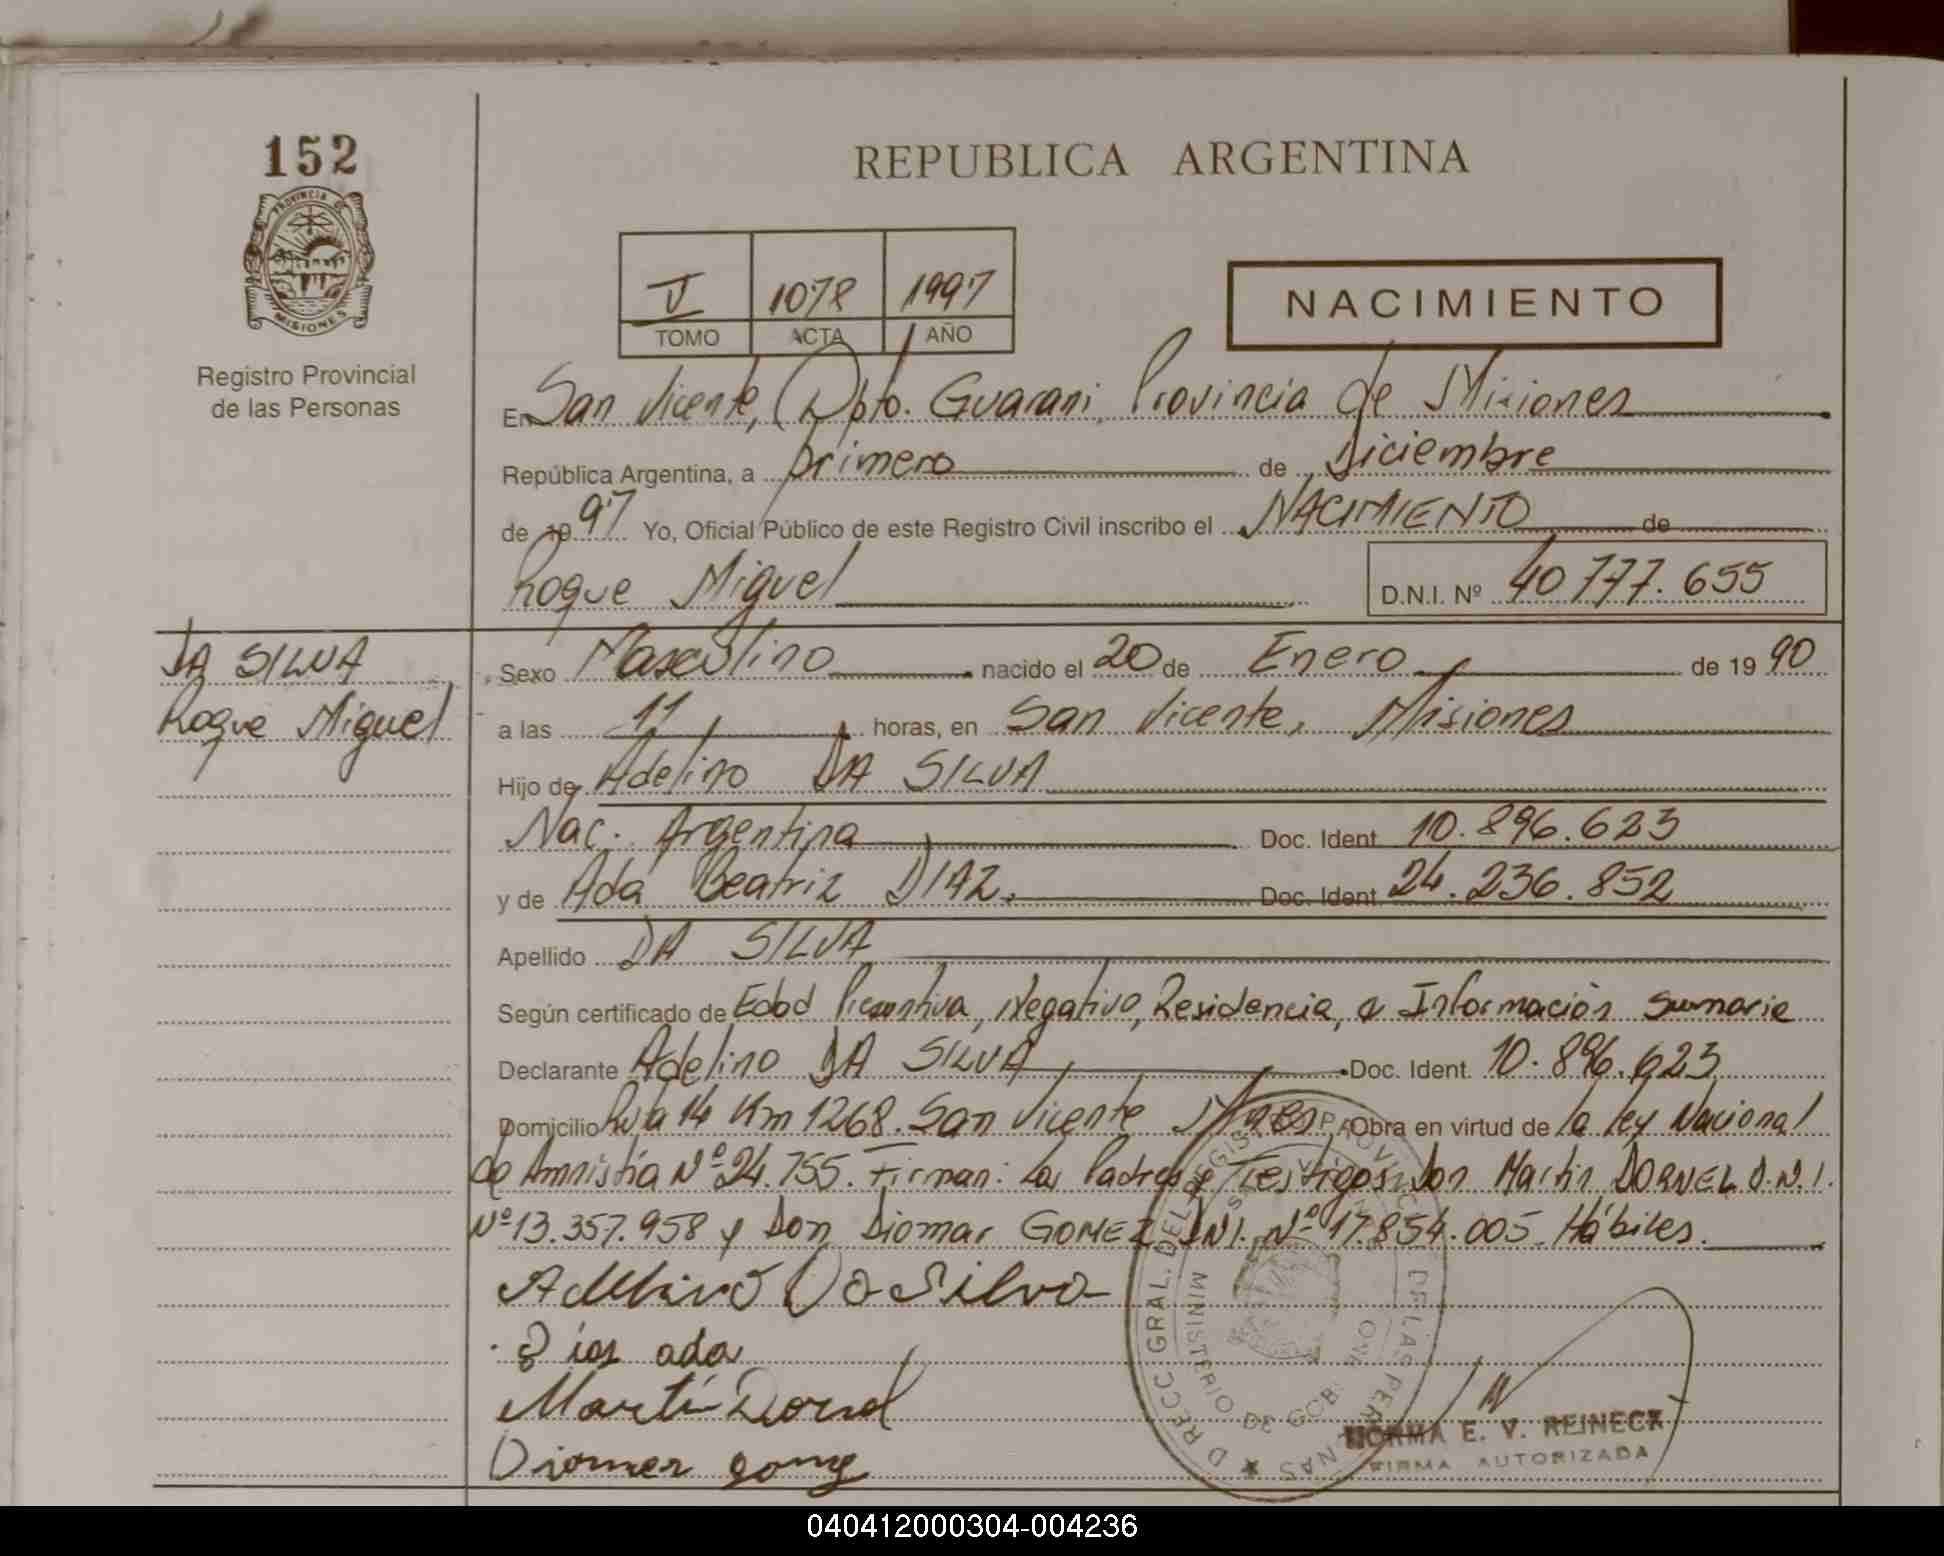 152
PROVINCIA DE
MISIONES
Registro Provincial
de las Personas
REPUBLICA ARGENTINA
V 1078 1997
TOMO ACTA AÑO
NACIMIENTO
En San Vicente, Dpto. Guarani, Provincia de Misiones
República Argentina, a primero de Diciembre
de 1997 Yo, Oficial Público de este Registro Civil inscribo el NACIMIENTO de
Roque Miguel D.N.I. Nº 40777.655
DA SILVA
Roque Miguel
Sexo Masculino nacido el 20 de Enero de 1990
a las 11 horas, en San Vicente, Misiones
Hijo de Adelino DA SILVA
Nac. Argentina Doc. Ident 10.896.623
y de Ada Beatriz DIAZ. Doc. Ident 24.236.852
Apellido DA SILVA
Según certificado de Edad Presuntiva, Negativo, Residencia, e Información Sumaria
Declarante Adelino DA SILVA Doc. Ident. 10.896.623
Domicilio Ruta 14 Km 1268. San Vicente Mnes. Obra en virtud de la ley Nacional
de Amnistía Nº 24.755. Firman: Los Padres y Testigos: Don Martin DORNEL D.N.I.
Nº 13.357.958 y Don Diomar GOMEZ DNI. Nº 17.854.005 Hábiles.
Adelino Da Silva
Dias ada
Martín Dornel
Diomer gomez
DIRECC GRAL. DEL REGISTRO PROVINCIAL DE LAS PERSONAS
MINISTERIO DE GOB
NORMA E. V. REINECK
FIRMA AUTORIZADA
040412000304-004236